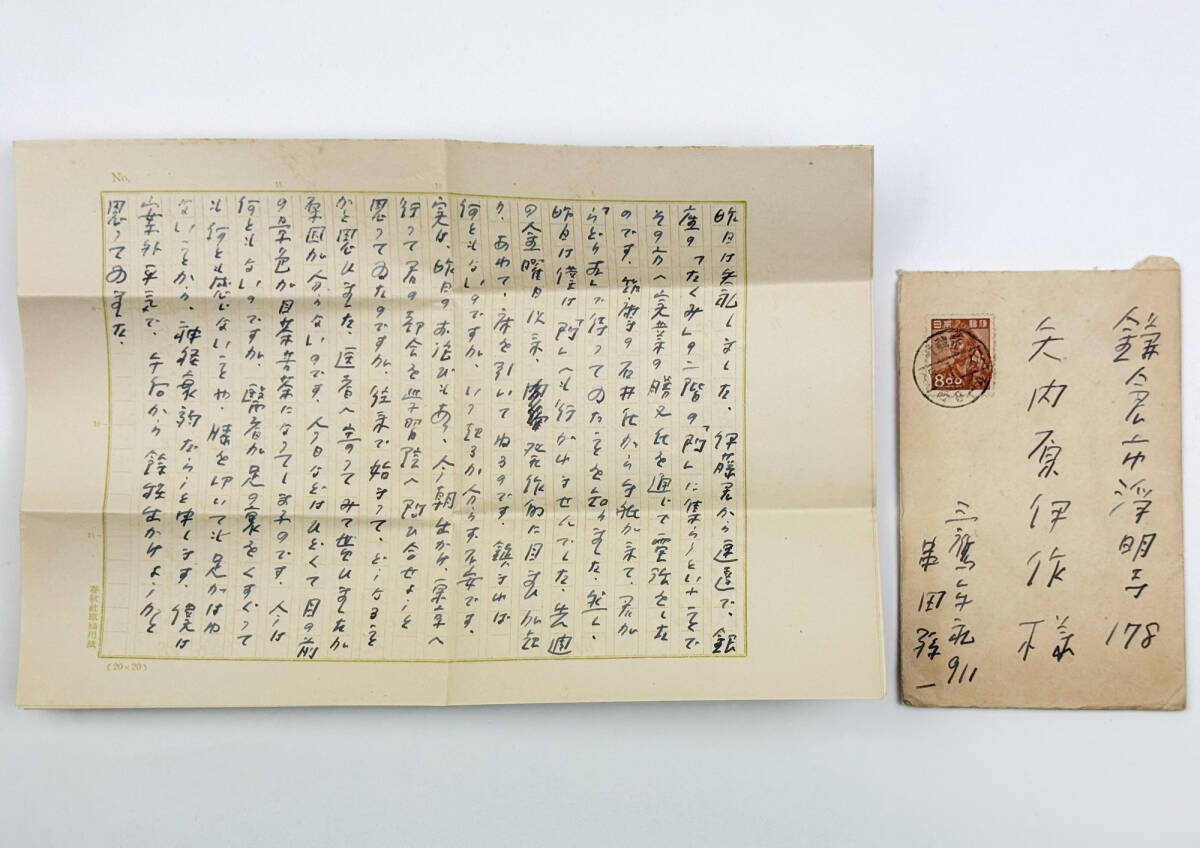 No.
昨日は失礼しました、伊藤君から速達で、銀
座の「たくみ」の二階の「門」に集らうといふことで
その方へ実業の勝又氏を通じて電話をした
のです。筑摩の石井氏から手紙が来て、君が
らどりあで待つてゐたことを知りました。然し、
昨日は僕は「門」へも行かれませんでした。先週
の金曜日以来、発作的に目まひが起
り、あわてて床を引いてねるのです。鎮まれば
何ともないのですが、いつ起るか分らず不安です。
実は、昨日のお詫びもあり、今朝出かけ、
行つて君の都合を学習院へ問ひ合せようと
思つてゐたのですが、往来で始まつて、どうなること
かと思ひました。医者へ寄つてみて貰ひましたが
原因が分らないのです。人々などはひどくて目の前
の景色が目茶苦茶になつてしまふのです。人は
何ともないのですが、医者が足の裏をくすぐつて
も何とも感じないことや、膝を叩いても足がはね
ないことから、神経衰弱だらうと申します。僕は
案外平気で、午后から余程出かけようかと
思つてゐました。
春秋社原稿用紙
(20×20)
日本郵便
8.00
鎌倉市浄明寺178
矢内原伊作様
三鷹牟礼911
串田孫一